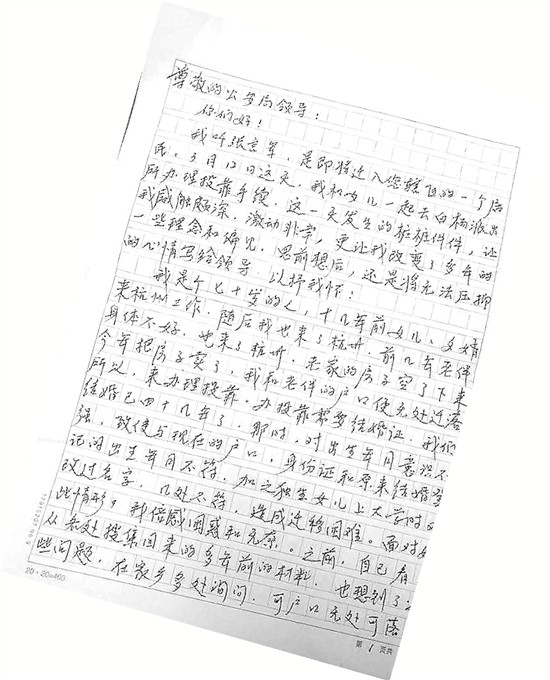 尊敬的公安局领导:
你们好!
我叫张立军,是即将迁入您辖区的一个居
民。3月12日这天,我和女儿一起去白杨派出
所办理投靠手续,这一天发生的桩桩件件,让
我感触颇深,激动非常,更让我改变了多年的
一些理念和偏见。思前想后,还是将无法压抑
的心情写给领导,以抒我怀:
我是个七十岁的人,十几年前女儿、女婿
来杭州工作,随后我也来了杭州,前几年老伴
身体不好,也来了杭州,老家的房子空了下来
今年把房子卖了,我和老伴的户口便无处迁落
所以,来办理投靠。办投靠需要结婚证,我们
结婚已四十几年了,那时,对出生年月意识不
强,致使与现在的户口、身份证和原来结婚登
记的出生年月不符,加之独生女儿上大学时又
改过名字,几处不符,造成迁移困难。面对
此情形,我倍感困惑和无奈。之前,自己看
从各处搜集回来的多年前的材料,也想到了
些问题,在家乡多处询问,可户口无处可落
20×20=400
第1页共